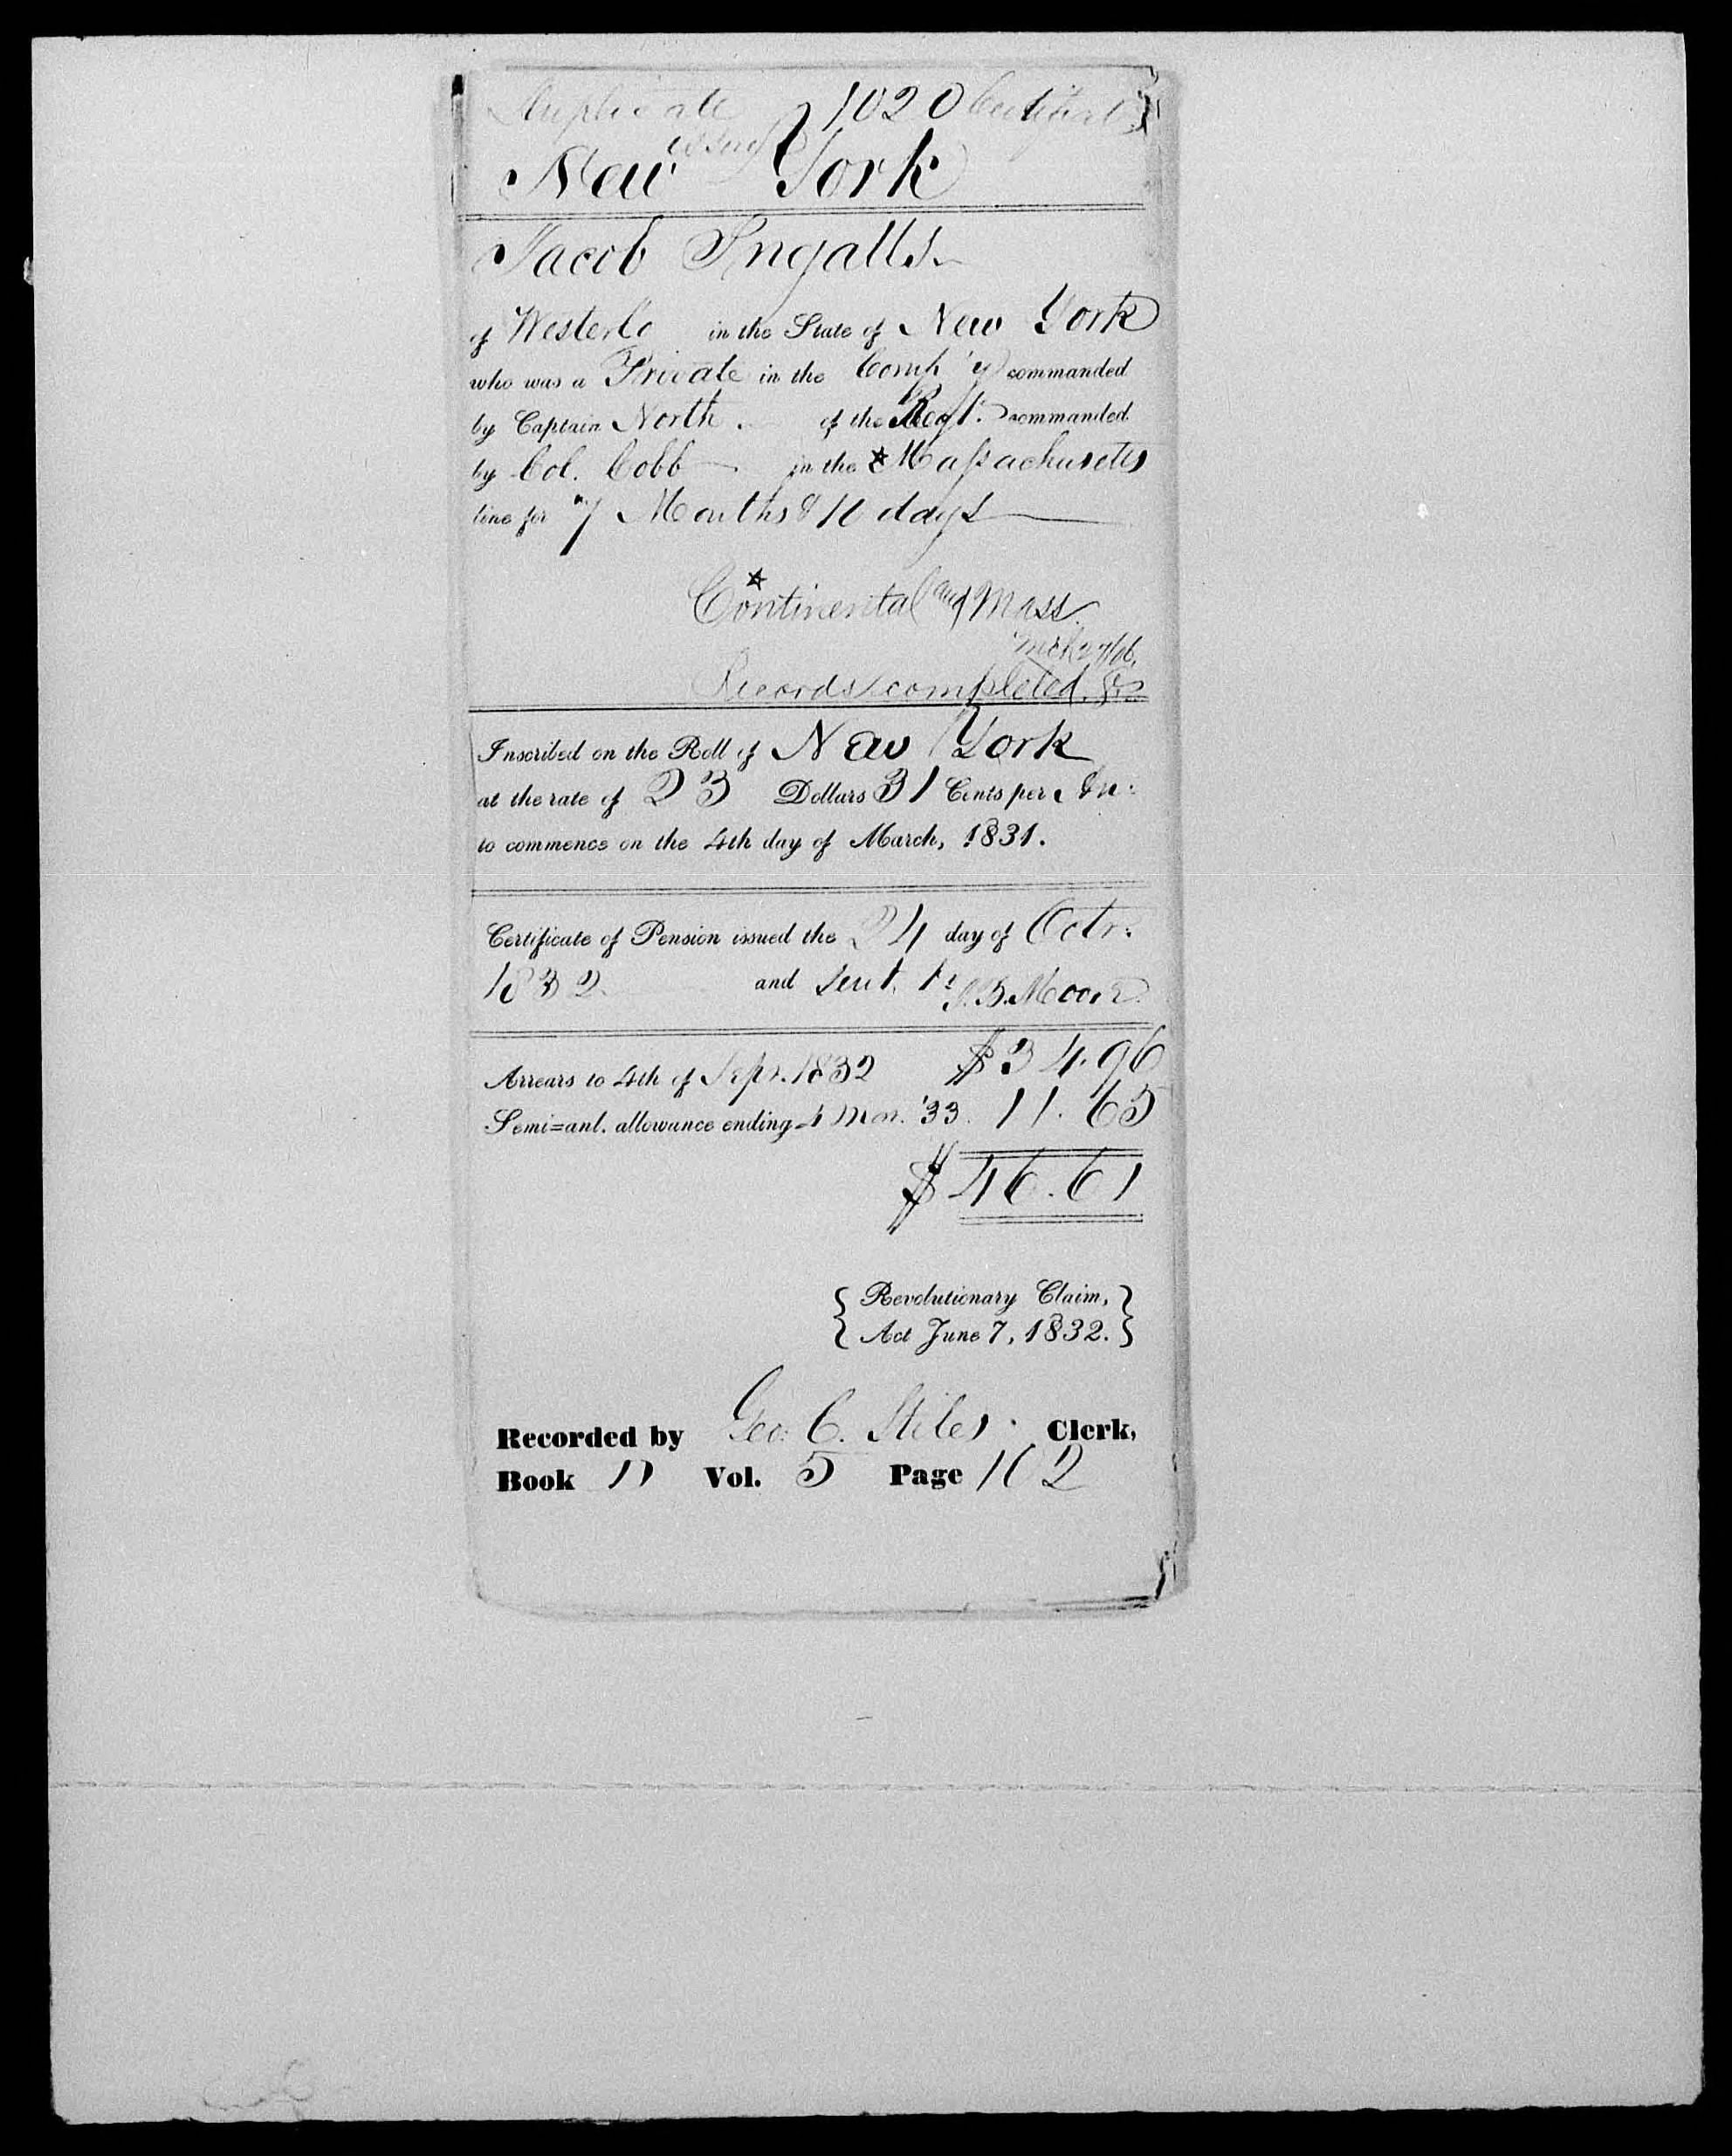 Duplicate 1020 Certificate
issued
New York
Jacob Ingalls
of Westerlo in the State of New York
who was a Private in the Comp'y commanded
by Captain North of the Regt. commanded
by Col. Cobb in the * Massachusetts
line for 7 Months & 10 days
* Continental and Mass.
Records completed.
Inscribed on the Roll of New York
at the rate of 23 Dollars 31 Cents per An:
to commence on the 4th day of March, 1831.
Certificate of Pension issued the 24 day of Octr:
1832 and sent to
J.B. Moore
Arrears to 4th of Sepr. 1832 $34.96
Semi=anl. allowance ending 4 Mar. '33. 11.65
$46.61
{ Revolutionary Claim, }
{ Act June 7, 1832. }
Recorded by Geo: C. Stiles. Clerk,
Book D Vol. 5 Page 102